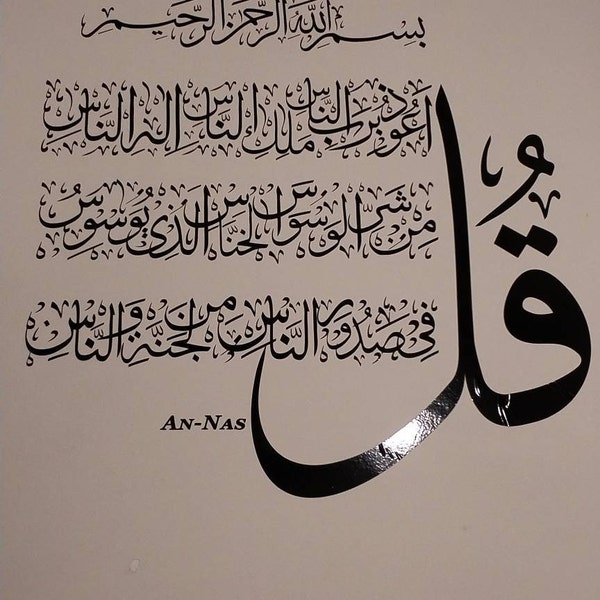 بِسْمِ اللَّهِ الرَّحْمَنِ الرَّحِيمِ
قُلْ
أَعُوذُ بِرَبِّ النَّاسِ مَلِكِ النَّاسِ إِلَهِ النَّاسِ
مِنْ شَرِّ الْوَسْوَاسِ الْخَنَّاسِ الَّذِي يُوَسْوِسُ
فِي صُدُورِ النَّاسِ مِنَ الْجِنَّةِ وَالنَّاسِ
AN-NAS